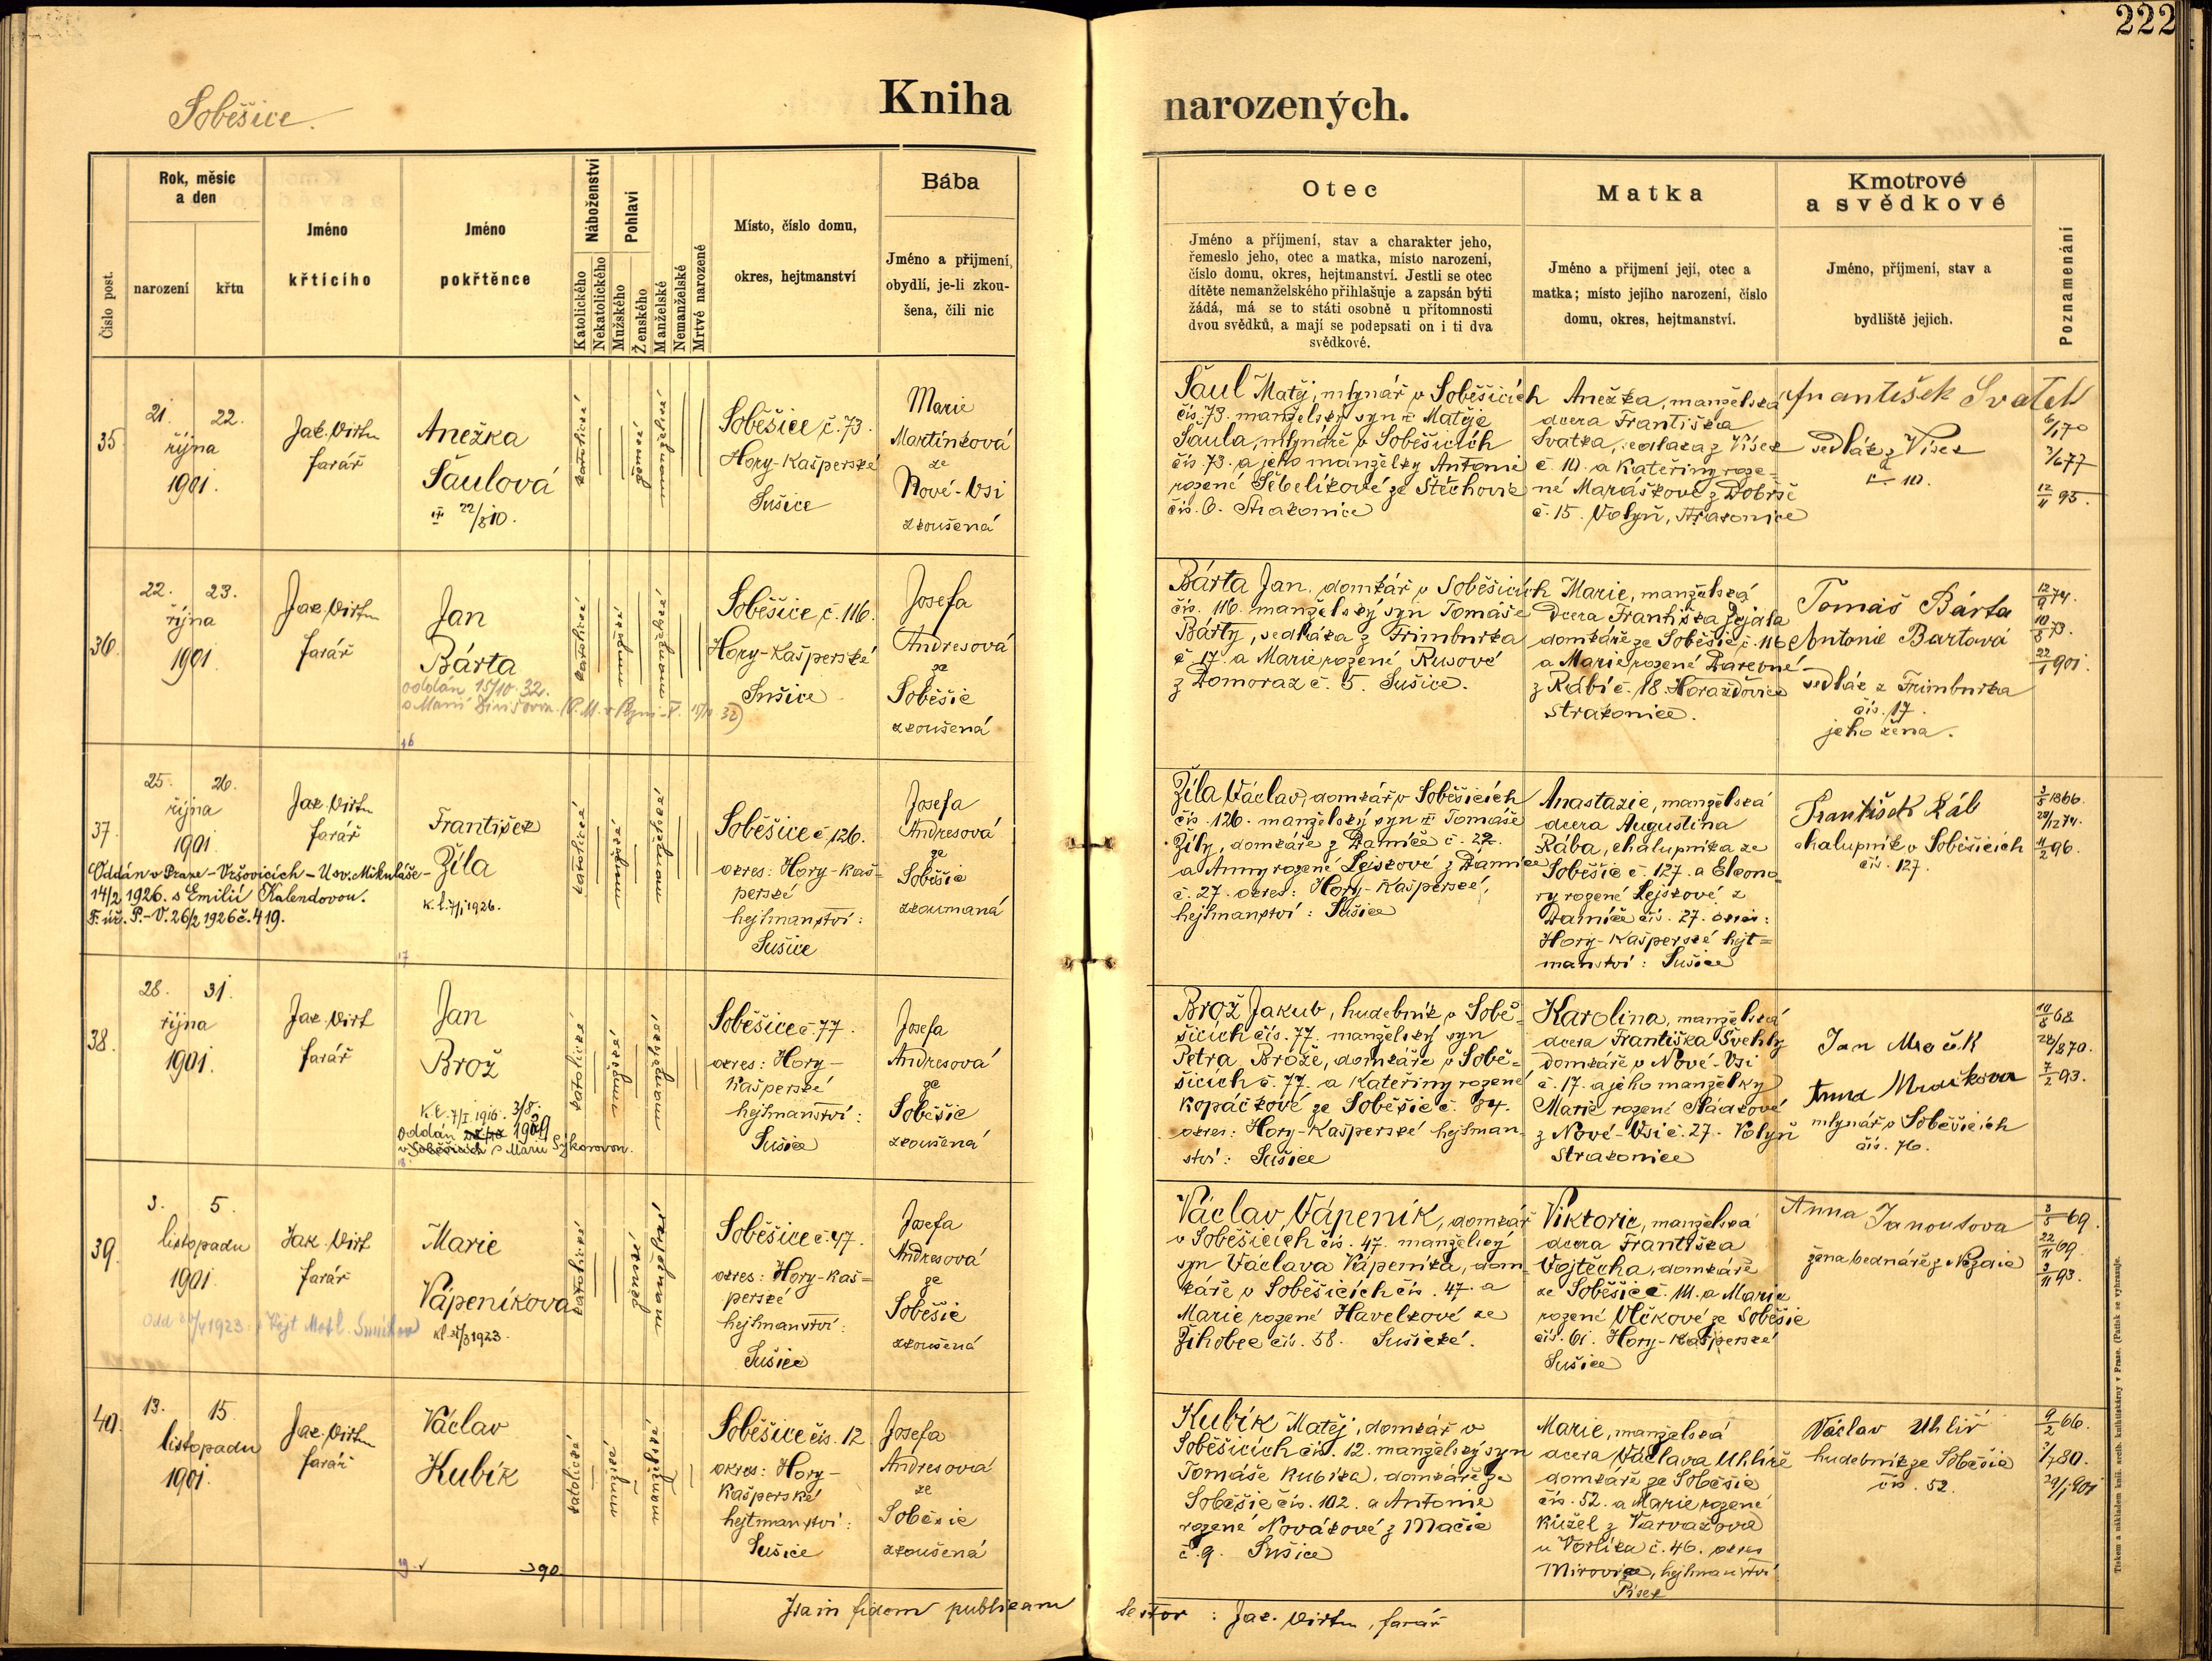 222
Soběšice.
Kniha narozených.
Číslo post.
Rok, měsíc
a den
narození
křtu
Jméno
křtícího
Jméno
pokřtěnce
Náboženství
Katolického
Nekatolického
Pohlaví
Mužského
Ženského
Manželské
Nemanželské
Mrtvě narozené
Místo, číslo domu,
okres, hejtmanství
Bába
Jméno a přijmení,
obydlí, je-li zkou-
šena, čili nic
Otec
Jméno a příjmení, stav a charakter jeho,
řemeslo jeho, otec a matka, místo narození,
číslo domu, okres, hejtmanství. Jestli se otec
dítěte nemanželského přihlašuje a zapsán býti
žádá, má se to státi osobně u přítomnosti
dvou svědků, a mají se podepsati on i ti dva
svědkové.
Matka
Jméno a přijmení její, otec a
matka; místo jejího narození, číslo
domu, okres, hejtmanství.
Kmotrové
a svědkové
Jméno, příjmení, stav a
bydliště jejich.
Poznamenání
35.
21. 22.
října
1901.
Jak. Virth
farář
Anežka
Šaulová
22/8 10.
katolické
ženské
manželské
Soběšice č. 73.
Hory-Kašperské
Sušice
Marie
Martínková
ze
Nové-Vsi
zkoušená
Šaul Matěj, mlynář v Soběšicích
čís. 73. manželský syn Matěje
Šaula, mlynáře v Soběšicích
čís. 73. a jeho manželky Antonie
rozené Šebelíkové ze Štěchovic
čís. 6. Strakonice
Anežka, manželská
dcera Františka
Svatka, sedláka z Vísek
č. 10. a Kateřiny roze-
né Maráškové z Dobrše
č. 15. Volyň, Strakonice
František Svatek
sedlák z Vísek
č. 10.
6/1 70
3/6 77
12/11 95.
36.
22. 23.
října
1901
Jak. Virth
farář
Jan
Bárta
oddán 15/10 32.
s Marií
16
katolické
mužské
manželské
Soběšice č. 116.
Hory-Kašperské
Sušice
Josefa
Andresová
ze
Soběšic
zkoušená
Bárta Jan, domkář v Soběšicích
čís. 116. manželský syn Tomáše
Bárty, sedláka z Frimburka
č. 17. a Marie rozené Rusové
z Domoraz č. 5. Sušice.
Marie, manželská
dcera Františka Jejdla
domkáře ze Soběšic č. 116
a Marie rozené Darebné
z Rábí č. 18. Horažďovice
Strakonice.
Tomáš Bárta
Antonie Bartová
sedlák z Frimburka
čís. 17.
jeho žena.
12/9 74.
10/8 73.
22/1 901.
37.
25. 26.
října
1901.
Jak. Virth
farář
František
Žíla
k. l. 7/1 1926.
Oddán v Praze-Vršovicích-U sv. Mikuláše-
14/2 1926. s Emilií Kalendovou.
F. úř. P.-V. 26/2 1926 č. 419.
17
katolické
mužské
manželské
Soběšice č. 126.
okres: Hory-Kaš-
perské
hejtmanství:
Sušice
Josefa
Andresová
ze
Soběšic
zkoumaná
Žíla Václav, domkář v Soběšicích
čís. 126. manželský syn Tomáše
Žíly, domkáře z Damíče č. 22.
a Anny rozené Lejskové z Damíče
č. 27. okres: Hory-Kašperské,
hejtmanství: Sušice
Anastazie, manželská
dcera Augustina
Rába, chalupníka ze
Soběšic č. 127. a Eleono-
ry rozené Lejskové z
Damíče čís. 27. okres:
Hory-Kašperské hejt=
manství: Sušice
František Ráb
chalupník v Soběšicích
čís. 127.
3/5 1866.
28/12 74.
11/2 96.
38.
28. 31.
října
1901.
Jak. Virt
farář
Jan
Brož
K. l. 7/I. 1916.
Oddán 3/8. 1929
v Soběšicích s Marií Sýkorovou.
18.
katolické
mužské
manželské
Soběšice č. 77.
okres: Hory-
Kašperské
hejtmanství:
Sušice
Josefa
Andresová
ze
Soběšic
zkoušená
Brož Jakub, hudebník v Sobě-
šicích čís. 77. manželský syn
Petra Brože, domkáře v Sobě-
šicích č. 77. a Kateřiny rozené
Kopáčkové ze Soběšic č. 84.
okres: Hory-Kašperské hejtman-
ství: Sušice
Karolina, manželská
dcera Františka Švehly
domkáře v Nové-Vsi
č. 17. a jeho manželky
Marie rozené
z Nové-Vsi č. 27. Volyň
Strakonice
Jan Mračk
Anna Mračkova
mlynář v Soběšicích
čís. 76.
10/8 68
28/8 70.
7/2 93.
39.
3. 5.
listopadu
1901.
Jak. Virt
farář
Marie
Vápeníkova
kl 31/3 1923.
katolické
ženské
manželské
Soběšice č. 47.
okres: Hory-Kaš=
perské
hejtmanství:
Sušice
Josefa
Andresová
ze
Soběšic
zkoušená
Václav Vápeník, domkář
v Soběšicích čís. 47. manželský
syn Václava Vápeníka, dom-
káře v Soběšicích čís. 47. a
Marie rozené Havelkové ze
Žihobec čís. 58. Sušické.
Viktorie, manželská
dcera Františka
Vojtěcha, domkáře
ze Soběšic č. 111. a Marie
rozené Vlčkové ze Soběšic
čís. 61. Hory-Kašperské
Sušice
Anna Janoutova
žena bednáře z Nezdic
3/5 69.
22/11 69.
3/11 93.
40.
13. 15.
listopadu
1901.
Jak. Virth
farář
Václav
Kubík
19.
390
katolické
mužské
manželské
Soběšice čís. 12
okres: Hory-
Kašperské
hejtmanství:
Sušice
Josefa
Andresová
ze
Soběšic
zkoušená
Kubík Matěj, domkář v
Soběšicích čís. 12. manželský syn
Tomáše Kubíka, domkáře ze
Soběšic čís. 102. a Antonie
rozené Novákové z Mačic
č. 9. Sušice
Marie, manželská
dcera Václava Uhlíře
domkáře ze Soběšic
čís. 52. a Marie rozené
Kužel z Varvažova
u Vorlíka č. 46. okres
Mirovice, hejtmanství
Písek
Václav Uhlíř
hudebník ze Soběšic
čís. 52.
9/2 66.
3/7 80.
29/1 901
In fidem publicam testor: Jak. Virth, farář
Tiskem a nákladem kníž. arcib. knihtiskárny v Praze. (Patisk se vyhrazuje.